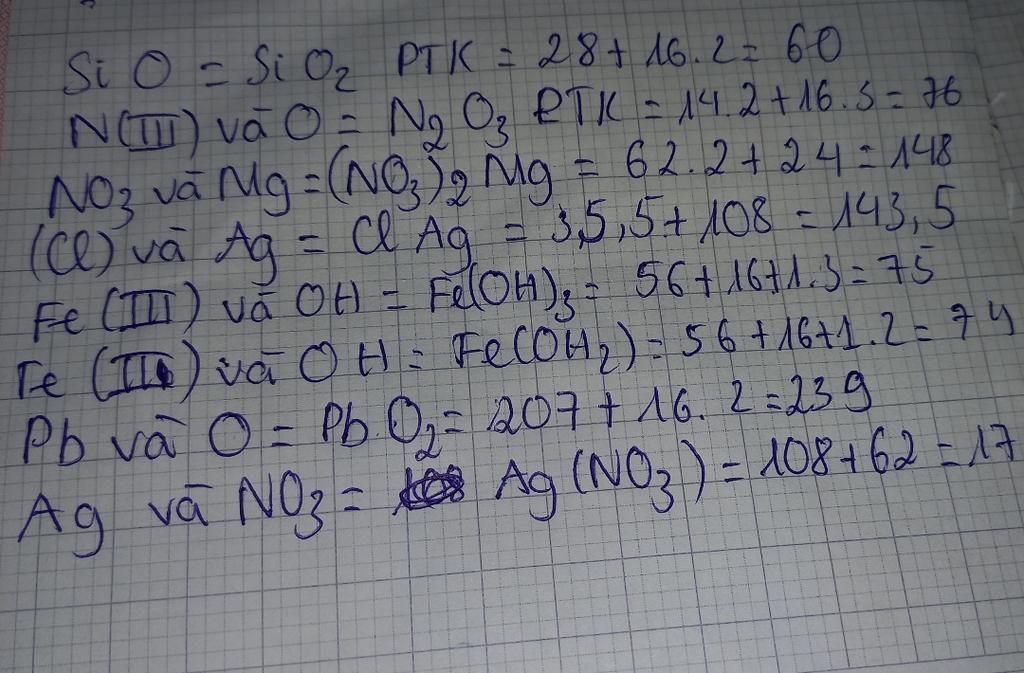 SiO = SiO₂ PTK = 28 + 16.2 = 60
N(III) và O = N₂O₃ PTK = 14.2 + 16.3 = 76
NO₃ và Mg = (NO₃)₂ Mg = 62.2 + 24 = 148
(Cl) và Ag = Cl Ag = 35,5 + 108 = 143,5
Fe (III) và OH = Fe(OH)₃ = 56 + 16 + 1.3 = 75
Fe (II) và OH = Fe(OH₂) = 56 + 16 + 1.2 = 74
Pb và O = Pb.O₂ = 207 + 16.2 = 239
Ag và NO₃ = Ag (NO₃) = 108 + 62 = 17